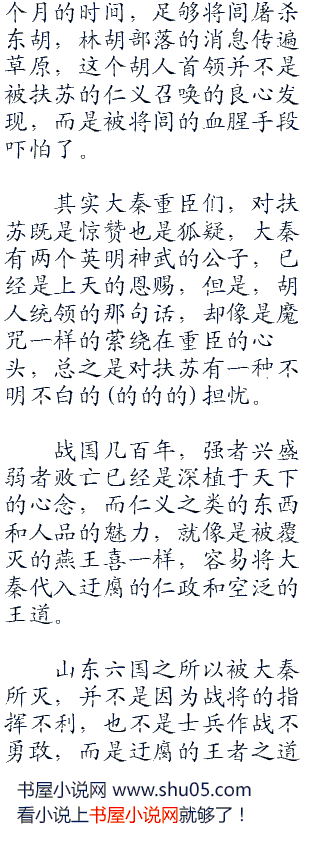 个月的时间，足够将闾屠杀
东胡，林胡部落的消息传遍
草原，这个胡人首领并不是
被扶苏的仁义召唤的良心发
现，而是被将闾的血腥手段
吓怕了。
其实大秦重臣们，对扶
苏既是惊赞也是狐疑，大秦
有两个英明神武的公子，已
经是上天的恩赐，但是，胡
人统领的那句话，却像是魔
咒一样的萦绕在重臣的心
头，总之是对扶苏有一种不
明不白的(的的的)担忧。
战国几百年，强者兴盛
弱者败亡已经是深植于天下
的心念，而仁义之类的东西
和人品的魅力，就像是被覆
灭的燕王喜一样，容易将大
秦代入迂腐的仁政和空泛的
王道。
山东六国之所以被大秦
所灭，并不是因为战将的指
挥不利，也不是士兵作战不
勇敢，而是迂腐的王者之道
书屋小说网 www.shu05.com
看小说上书屋小说网就够了！